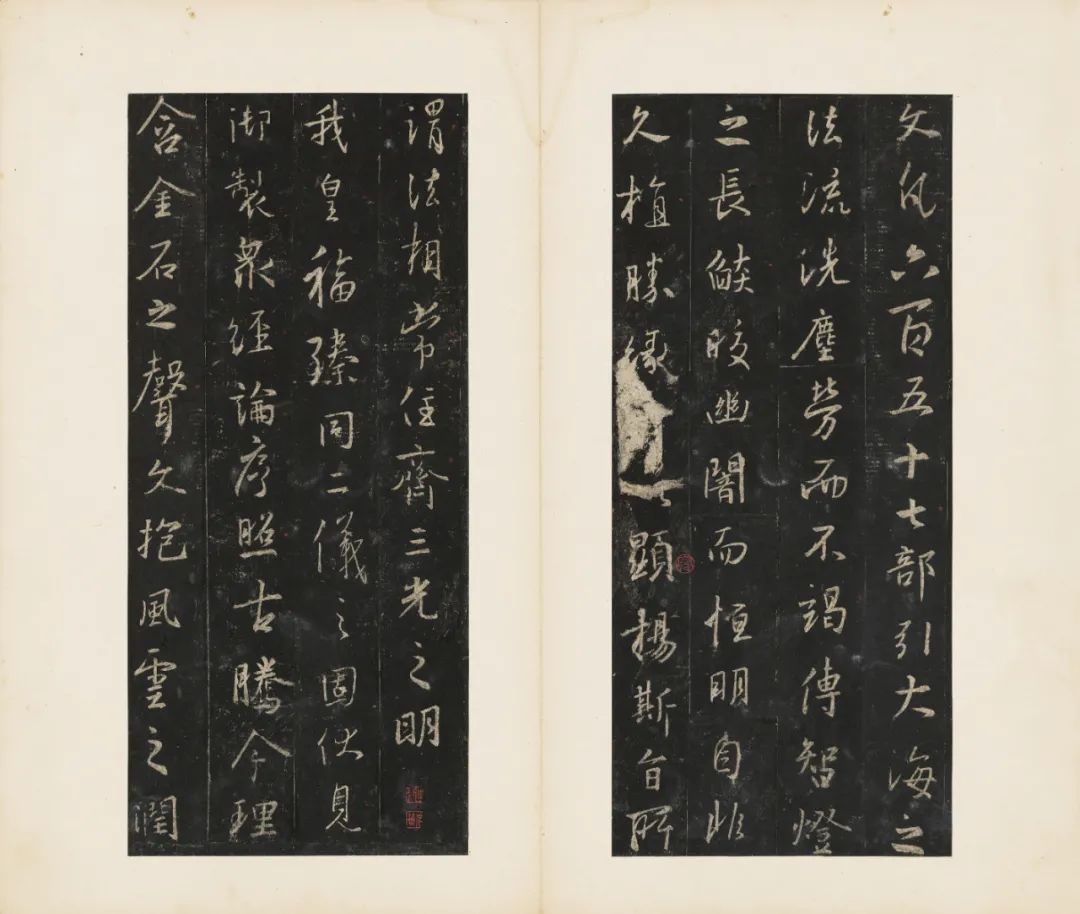 文凡六百五十七部引大海之
法流洗塵勞而不竭傳智燈
之長焰皎幽闇而恒明自非
久植勝緣顯揚斯旨所
謂法相常住齊三光之明
我皇福臻同二儀之固伏見
御製眾經論序照古騰今理
含金石之聲文抱風雲之潤